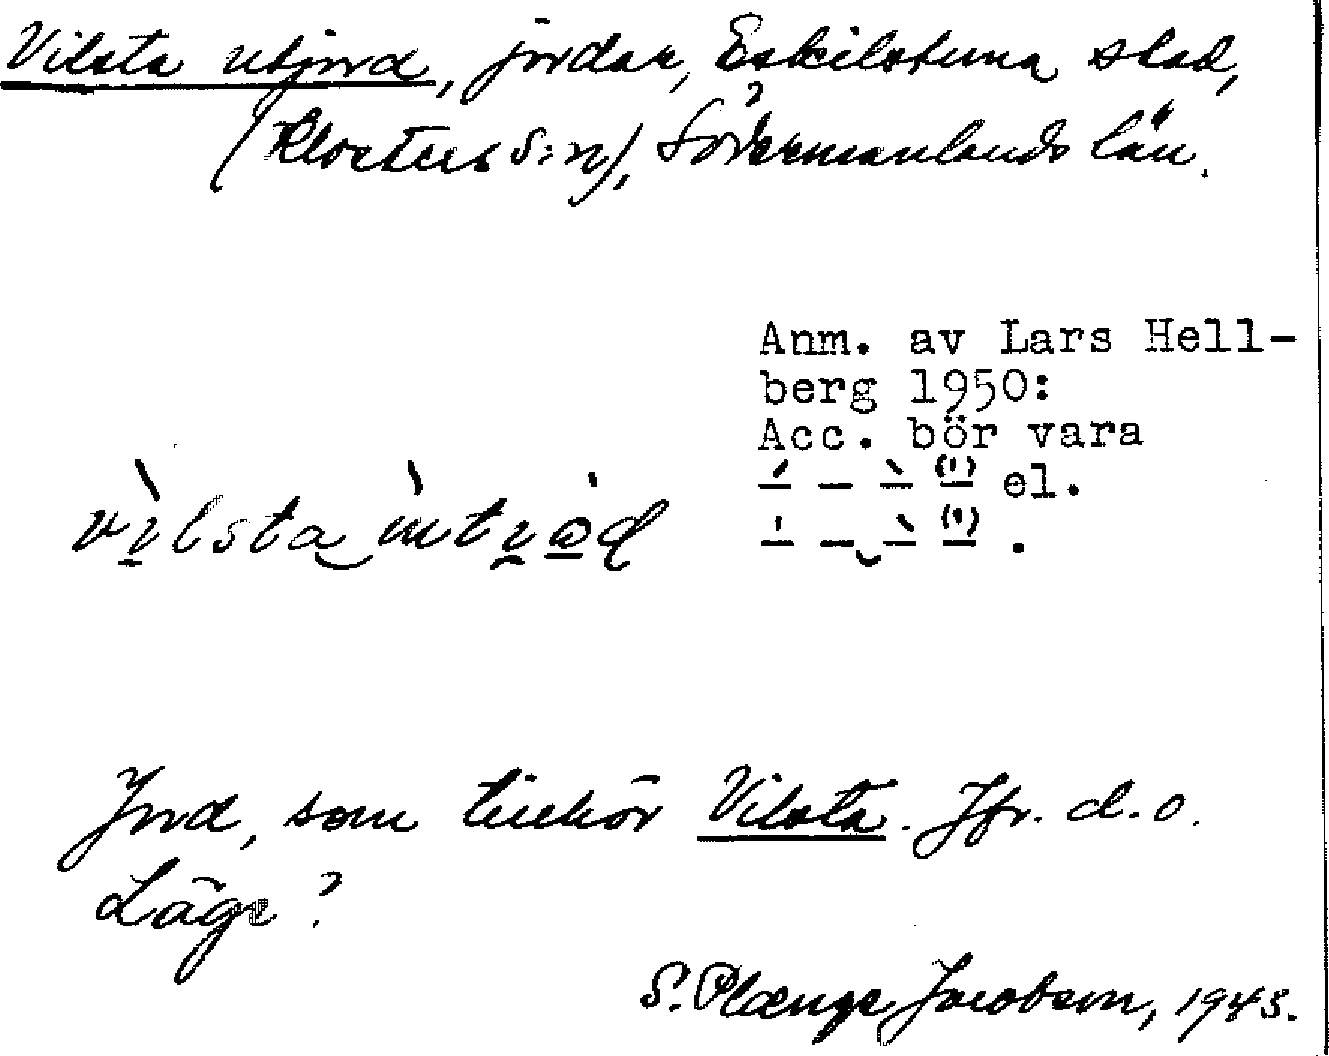 Vilsta utjord, jordar, Eskilstuna stad,
(Klosters s:n), Södermanlands län.
Anm. av Lars Hell-
berg 1950:
Acc. bör vara
el.
Jord, som tillhör Vilsta. Jfr. d.o.
Läge?
S. Plænge Jacobson, 1943.